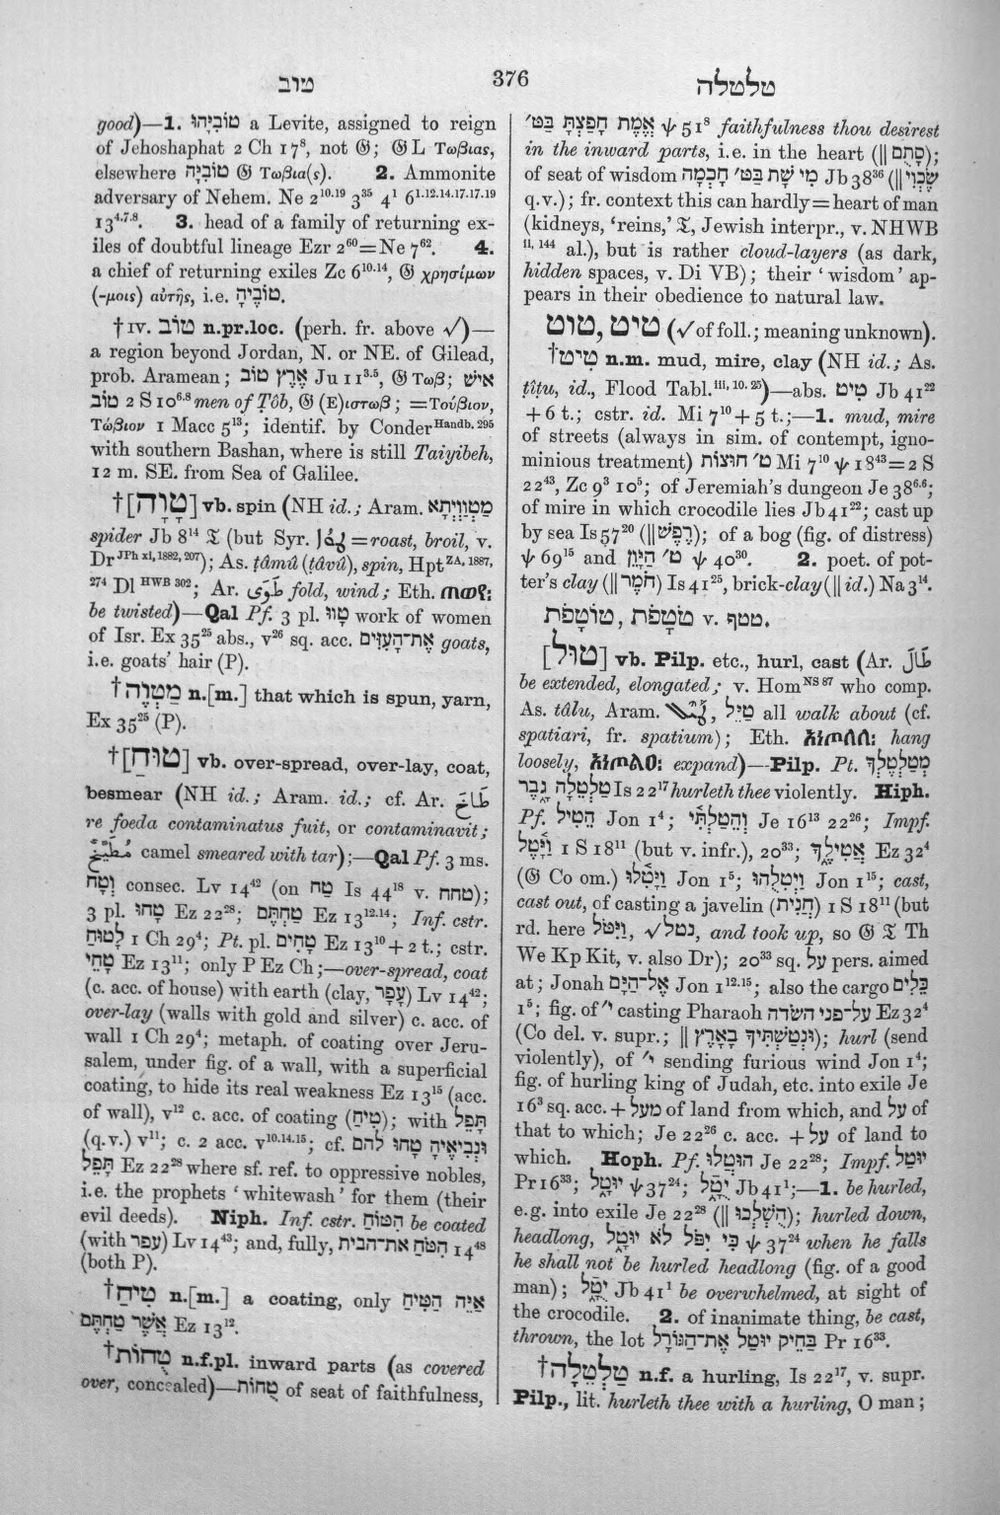 טוב
376
טלטלה
good)—1. טוֹבִיָּהוּ a Levite, assigned to reign
of Jehoshaphat 2 Ch 17⁸, not 𝔊; 𝔊 L Τωβιας,
elsewhere טוֹבִיָּה 𝔊 Τωβια(ς). 2. Ammonite
adversary of Nehem. Ne 2¹⁰·¹⁹ 3³⁵ 4¹ 6¹·¹²·¹⁴·¹⁷·¹⁷·¹⁹
13⁴·⁷·⁸. 3. head of a family of returning ex-
iles of doubtful lineage Ezr 2⁶⁰=Ne 7⁶². 4.
a chief of returning exiles Zc 6¹⁰·¹⁴, 𝔊 χρησίμων
(-μοις) αὐτῆς, i.e. טוֹבֶיהָ.
†IV. טוֹב n.pr.loc. (perh. fr. above √)—
a region beyond Jordan, N. or NE. of Gilead,
prob. Aramean; אֶרֶץ טוֹב Ju 11³·⁵, 𝔊 Τωβ; אִישׁ
טוֹב 2 S 10⁶·⁸ men of Ṭôb, 𝔊 (Ε)ιστωβ; =Τούβιον,
Τώβιον 1 Macc 5¹³; identif. by Conder Handb. 295
with southern Bashan, where is still Taiyibeh,
12 m. SE. from Sea of Galilee.
†[טָוָה] vb. spin (NH id.; Aram. מַטְוִויתָא
spider Jb 8¹⁴ 𝔗 (but Syr. =roast, broil, v.
Dr JPh xi, 1882, 207); As. ṭâmû (ṭâvû), spin, Hpt ZA, 1887,
274 Dl HWB 302; Ar. طَوَى fold, wind; Eth. ጠወየ:
be twisted)—Qal Pf. 3 pl. טָווּ work of women
of Isr. Ex 35²⁵ abs., v²⁶ sq. acc. אֶת־הָעִזִּים goats,
i.e. goats' hair (P).
†מַטְוֶה n.[m.] that which is spun, yarn,
Ex 35²⁵ (P).
†[טוּחַ] vb. over-spread, over-lay, coat,
besmear (NH id.; Aram. id.; cf. Ar. طَاخَ
re foeda contaminatus fuit, or contaminavit;
camel smeared with tar);—Qal Pf. 3 ms.
וְטָח consec. Lv 14⁴² (on טַח Is 44¹⁸ v. טחח);
3 pl. טָחוּ Ez 22²⁸; טַחְתֶּם Ez 13¹²·¹⁴; Inf. cstr.
לָטוּחַ 1 Ch 29⁴; Pt. pl. טָחִים Ez 13¹⁰+2 t.; cstr.
טָחֵי Ez 13¹¹; only P Ez Ch;—over-spread, coat
(c. acc. of house) with earth (clay, עָפָר) Lv 14⁴²;
over-lay (walls with gold and silver) c. acc. of
wall 1 Ch 29⁴; metaph. of coating over Jeru-
salem, under fig. of a wall, with a superficial
coating, to hide its real weakness Ez 13¹⁵ (acc.
of wall), v¹² c. acc. of coating (טִיחַ); with תָּפֵל
(q.v.) v¹¹; c. 2 acc. v¹⁰·¹⁴·¹⁵; cf. וּנְבִיאֶיהָ טָחוּ להם
תָּפֵל Ez 22²⁸ where sf. ref. to oppressive nobles,
i.e. the prophets ‘whitewash’ for them (their
evil deeds). Niph. Inf. cstr. הִטּוֹחַ be coated
(with עפר) Lv 14⁴³; and, fully, הִטֹּחַ אֶת־הבית 14⁴⁸
(both P).
†טִיחַ n.[m.] a coating, only אַיֵּה הַטִּיחַ
אֲשֶׁר טַחְתֶּם Ez 13¹².
†טֻחוֹת n.f.pl. inward parts (as covered
over, concealed)—טֻחוֹת of seat of faithfulness,
אֱמֶת חָפַצְתָּ בַט׳ ψ 51⁸ faithfulness thou desirest
in the inward parts, i.e. in the heart (‖ סָתֻם);
of seat of wisdom מִי שָׁת בַּט׳ חָכְמָה Jb 38³⁶ (‖ שֶׂכְוִי
q.v.); fr. context this can hardly=heart of man
(kidneys, ‘reins,’ 𝔗, Jewish interpr., v. NHWB
ii, 144 al.), but is rather cloud-layers (as dark,
hidden spaces, v. Di VB); their ‘wisdom’ ap-
pears in their obedience to natural law.
טוט, טיט (√ of foll.; meaning unknown).
†טִיט n.m. mud, mire, clay (NH id.; As.
ṭîṭu, id., Flood Tabl. iii, 10. 25)—abs. טִיט Jb 41²²
+6 t.; cstr. id. Mi 7¹⁰+5 t.;—1. mud, mire
of streets (always in sim. of contempt, igno-
minious treatment) ט׳ חוּצוֹת Mi 7¹⁰ ψ 18⁴³=2 S
22⁴³, Zc 9³ 10⁵; of Jeremiah's dungeon Je 38⁶·⁶;
of mire in which crocodile lies Jb 41²²; cast up
by sea Is 57²⁰ (‖ רֶפֶשׁ); of a bog (fig. of distress)
ψ 69¹⁵ and ט׳ הַיָּוֵן ψ 40³⁰. 2. poet. of pot-
ter's clay (‖ חֹמֶר) Is 41²⁵, brick-clay (‖ id.) Na 3¹⁴.
טֹטָפֹת, טוֹטָפֹת v. טטף.
[טוּל] vb. Pilp. etc., hurl, cast (Ar. طَالَ
be extended, elongated; v. Hom NS 87 who comp.
As. tâlu, Aram. , טַיֵּל all walk about (cf.
spatiari, fr. spatium); Eth. hang
loosely, expand)—Pilp. Pt. מְטַלְטֶלְךָ
טַלְטֵלָה גָּבֶר Is 22¹⁷ hurleth thee violently. Hiph.
Pf. הֵטִיל Jon 1⁴; וְהֵטַלְתִּי Je 16¹³ 22²⁶; Impf.
וַיָּטֶל 1 S 18¹¹ (but v. infr.), 20³³; אֲטִילֶךָ Ez 32⁴
(𝔊 Co om.) וַיָּטִלוּ Jon 1⁵; וַיְטִלֻהוּ Jon 1¹⁵; cast,
cast out, of casting a javelin (חֲנִית) 1 S 18¹¹ (but
rd. here וַיִּטֹּל, √נטל, and took up, so 𝔊 𝔗 Th
We Kp Kit, v. also Dr); 20³³ sq. עַל pers. aimed
at; Jonah אֶל־הַיָּם Jon 1¹²·¹⁵; also the cargo כֵּלִים
1⁵; fig. of ״ casting Pharaoh עַל־פני השׂדה Ez 32⁴
(Co del. v. supr.; ‖ וּנְטַשְׁתִּיךָ בָאָרֶץ); hurl (send
violently), of ״ sending furious wind Jon 1⁴;
fig. of hurling king of Judah, etc. into exile Je
16³ sq. acc. + מעל of land from which, and על of
that to which; Je 22²⁶ c. acc. + על of land to
which. Hoph. Pf. הוּטֲלוּ Je 22²⁸; Impf. יוּטַל
Pr 16³³; יוּטָל ψ 37²⁴; יֻטָל Jb 41¹;—1. be hurled,
e.g. into exile Je 22²⁸ (‖ הֻשְׁלְכוּ); hurled down,
headlong, כִּי יִפֹּל לֹא יוּטָל ψ 37²⁴ when he falls
he shall not be hurled headlong (fig. of a good
man); יֻטָל Jb 41¹ be overwhelmed, at sight of
the crocodile. 2. of inanimate thing, be cast,
thrown, the lot בַּחֵיק יוּטַל אֶת־הַגּוֹרָל Pr 16³³.
†טַלְטֵלָה n.f. a hurling, Is 22¹⁷, v. supr.
Pilp., lit. hurleth thee with a hurling, O man;